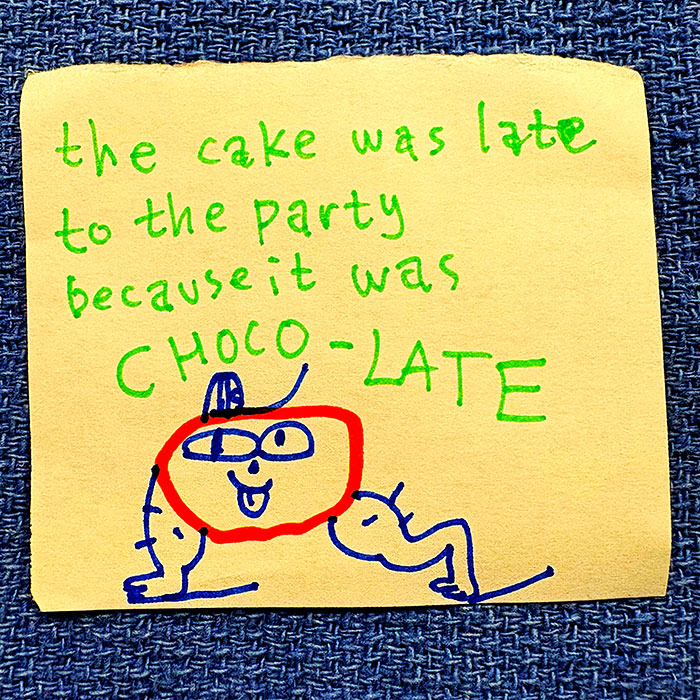 the cake was late
to the party
because it was
CHOCO-LATE